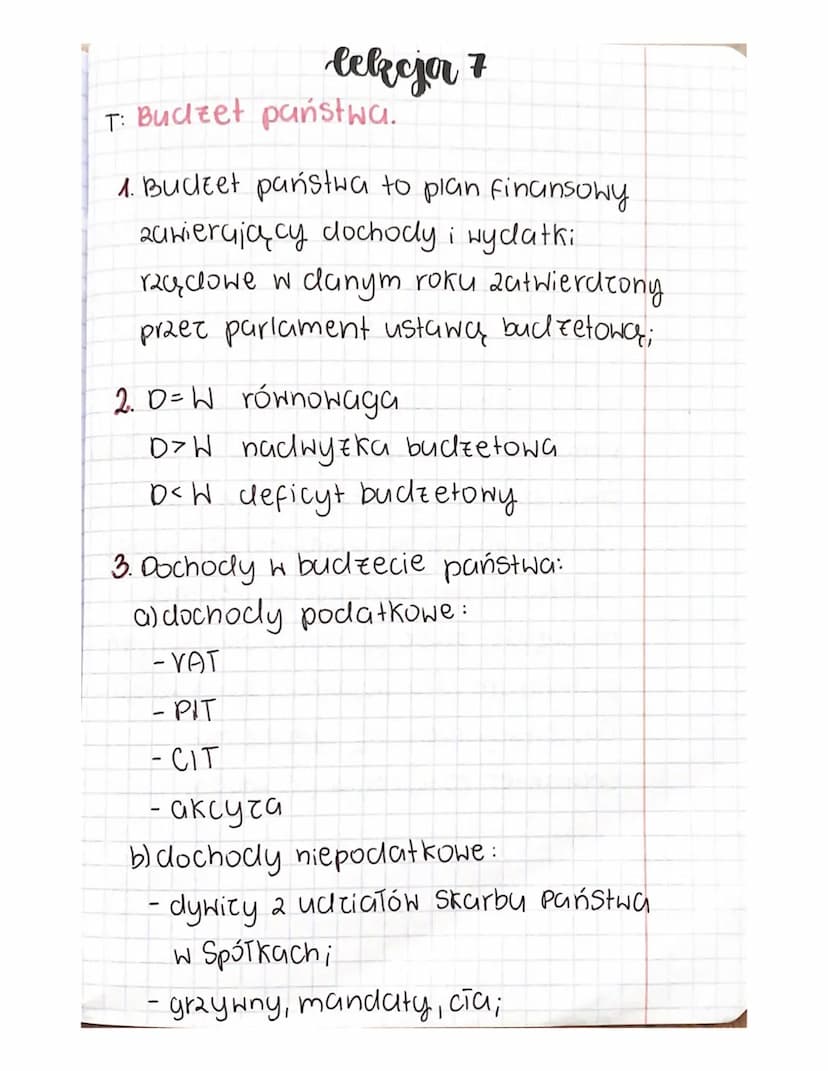 lekcja 7
T: Budżet państwa.
1. Budżet państwa to plan finansowy
zawierający dochody i wydatki
rządowe w danym roku zatwierdzony
przez parlament ustawą budżetową;
2. D=W równowaga
D>W nadwyżka budżetowa
D<W deficyt budżetowy
3. Dochody w budżecie państwa:
a) dochody podatkowe:
- VAT
- PIT
- CIT
- akcyza
b) dochody niepodatkowe:
- dywizy z udziałów Skarbu Państwa
w Spółkach;
- grzywny, mandaty, cła;